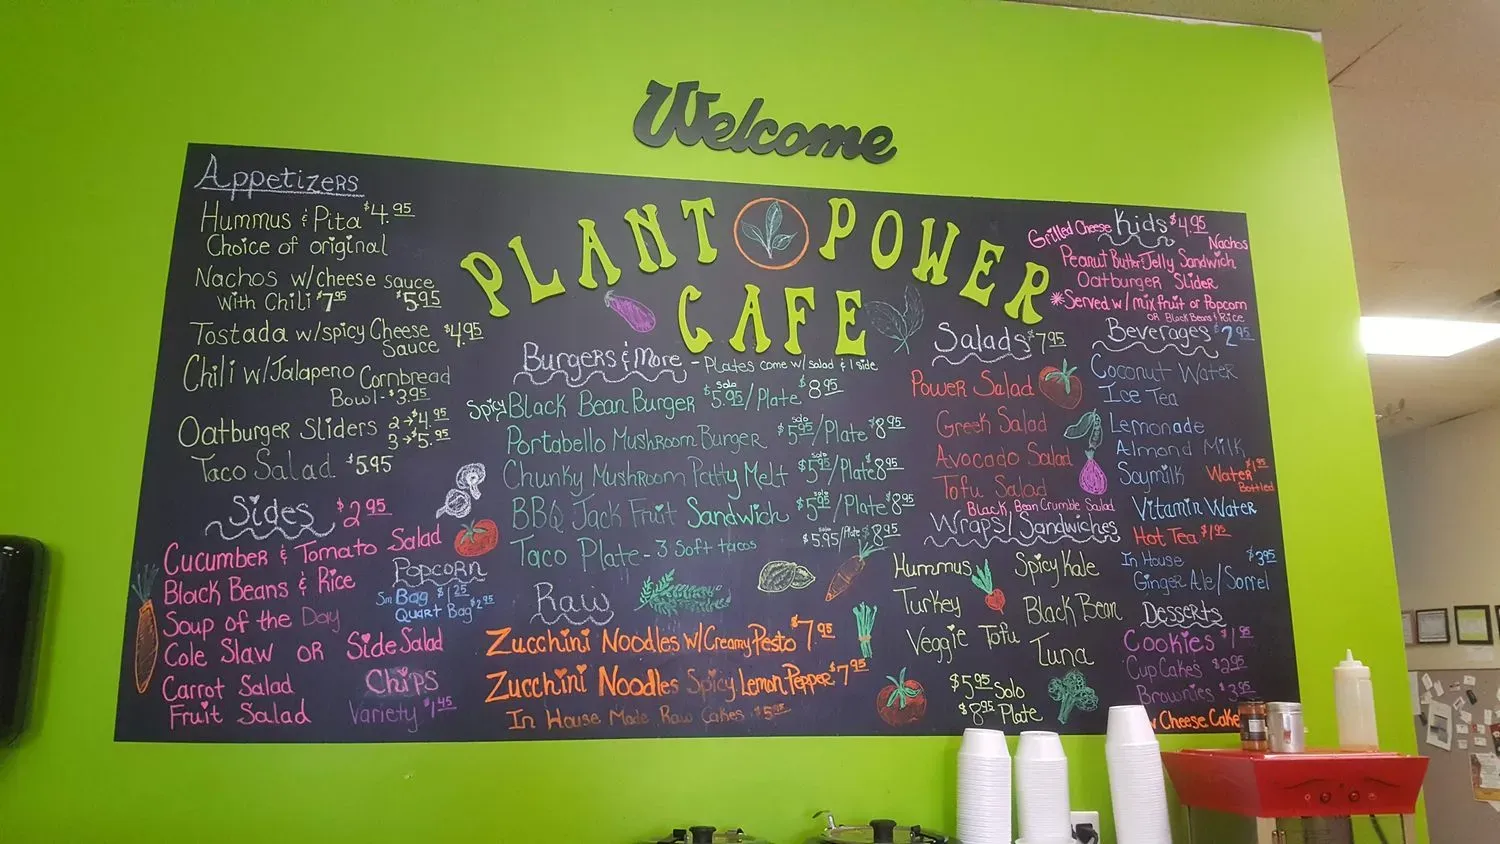 Welcome
PLANT POWER
CAFE
Appetizers
Hummus & Pita $4.95
Choice of original
Nachos w/cheese sauce
with Chili $7.95 $5.95
Tostada w/spicy Cheese
Sauce $4.95
Chili w/Jalapeno Cornbread
Bowl - $3.95
Oatburger Sliders 2→$4.95
3→$5.95
Taco Salad $5.95
Sides $2.95
Cucumber & Tomato Salad
Black Beans & Rice
Soup of the Day
Cole Slaw OR Side Salad
Carrot Salad
Fruit Salad
Popcorn
Sm Bag $1.25
Quart Bag $2.95
Chips
Variety $1.45
Burgers & More - Plates come w/ salad & 1 side
Spicy Black Bean Burger $5.95 solo/Plate $8.95
Portabello Mushroom Burger $5.95 solo/Plate $8.95
Chunky Mushroom Patty Melt $5.95 solo/Plate $8.95
BBQ Jack Fruit Sandwich $5.95 solo/Plate $8.95
Taco Plate - 3 Soft tacos $5.95 solo/Plate $8.95
Raw
Zucchini Noodles w/Creamy Pesto $7.95
Zucchini Noodles Spicy Lemon Pepper $7.95
In House Made Raw Cakes $5.95
Salads $7.95
Power Salad
Greek Salad
Avocado Salad
Tofu Salad
Black Bean Crumble Salad
Wraps/Sandwiches
Hummus Spicy Kale
Turkey Black Bean
Veggie Tofu Tuna
$5.95 Solo
$8.95 Plate
Kids $4.95
Grilled Cheese Nachos
Peanut Butter Jelly Sandwich
Oatburger Slider
*Served w/ mix fruit or Popcorn
OR Black Beans & Rice
Beverages $2.95
Coconut Water
Ice Tea
Lemonade
Almond Milk
Soymilk
Water $1.95
Bottled
Vitamin Water
Hot Tea $1.95
In House $3.95
Ginger Ale/Sorrel
Desserts
Cookies $1.95
CupCakes $2.95
Brownies $3.95
Cheese Cake